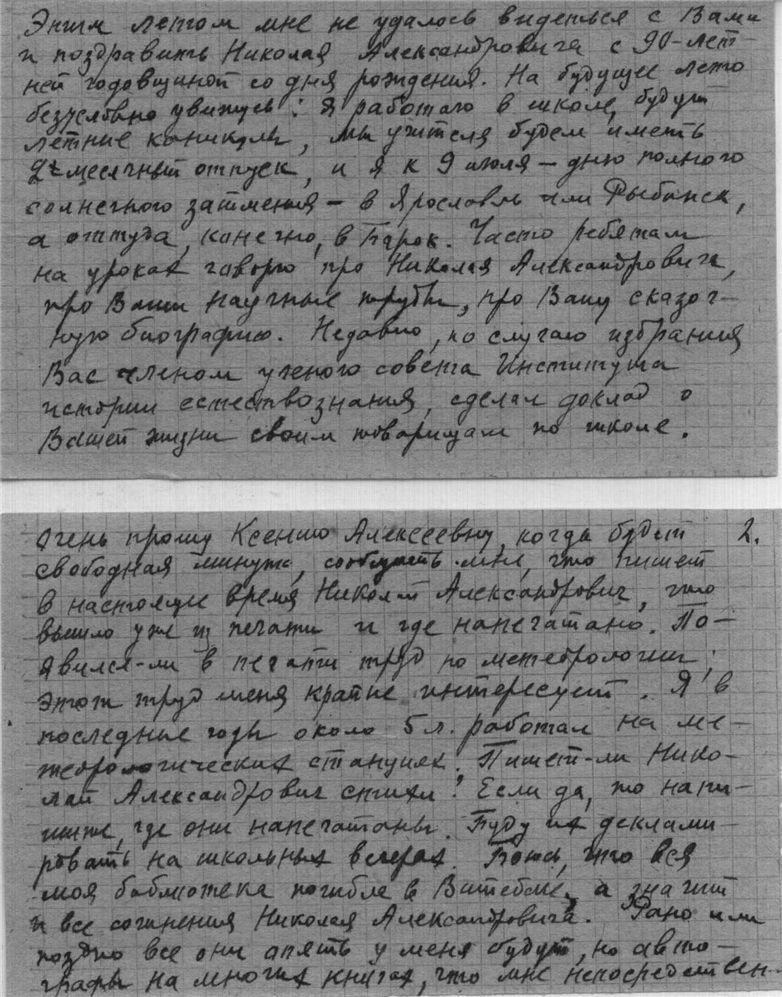 Этим летом мне не удалось видеться с Вами
и поздравить Николая Александровича с 90-лет-
ней годовщиной со дня рождения. На будущее лето
безусловно увижусь: я работаю в школе, будут
летние каникулы, мы учителя будем иметь
2х месячный отпуск, и я к 9 июля – дню полного
солнечного затмения – в Ярославль или Рыбинск,
а оттуда, конечно, в Борок. Часто ребятам
на уроках говорю про Николая Александровича,
про Ваши научные труды, про Вашу сказоч-
ную биографию. Недавно, по случаю избрания
Вас членом ученого совета Института
истории естествознания, сделал доклад о
Вашей жизни своим товарищам по школе.
Очень прошу Ксению Алексеевну, когда будет 2.
свободная минута, сообщить мне, что пишет
в настоящее время Николай Александрович, что
вышло уже из печати и где напечатано. По-
явился-ли в печати труд по метеорологии;
этот труд меня крайне интересует. Я в
последние годы около 5 л. работал на ме-
теорологических станциях. Пишет-ли Нико-
лай Александрович стихи? Если да, то напи-
шите, где они напечатаны. Буду их деклами-
ровать на школьных вечерах. Боюсь, что вся
моя библиотека погибла в Витебске, а значит
и все сочинения Николая Александровича. Рано или
поздно все они опять у меня будут, но авто-
графы на многих книгах, что мне непосредствен-